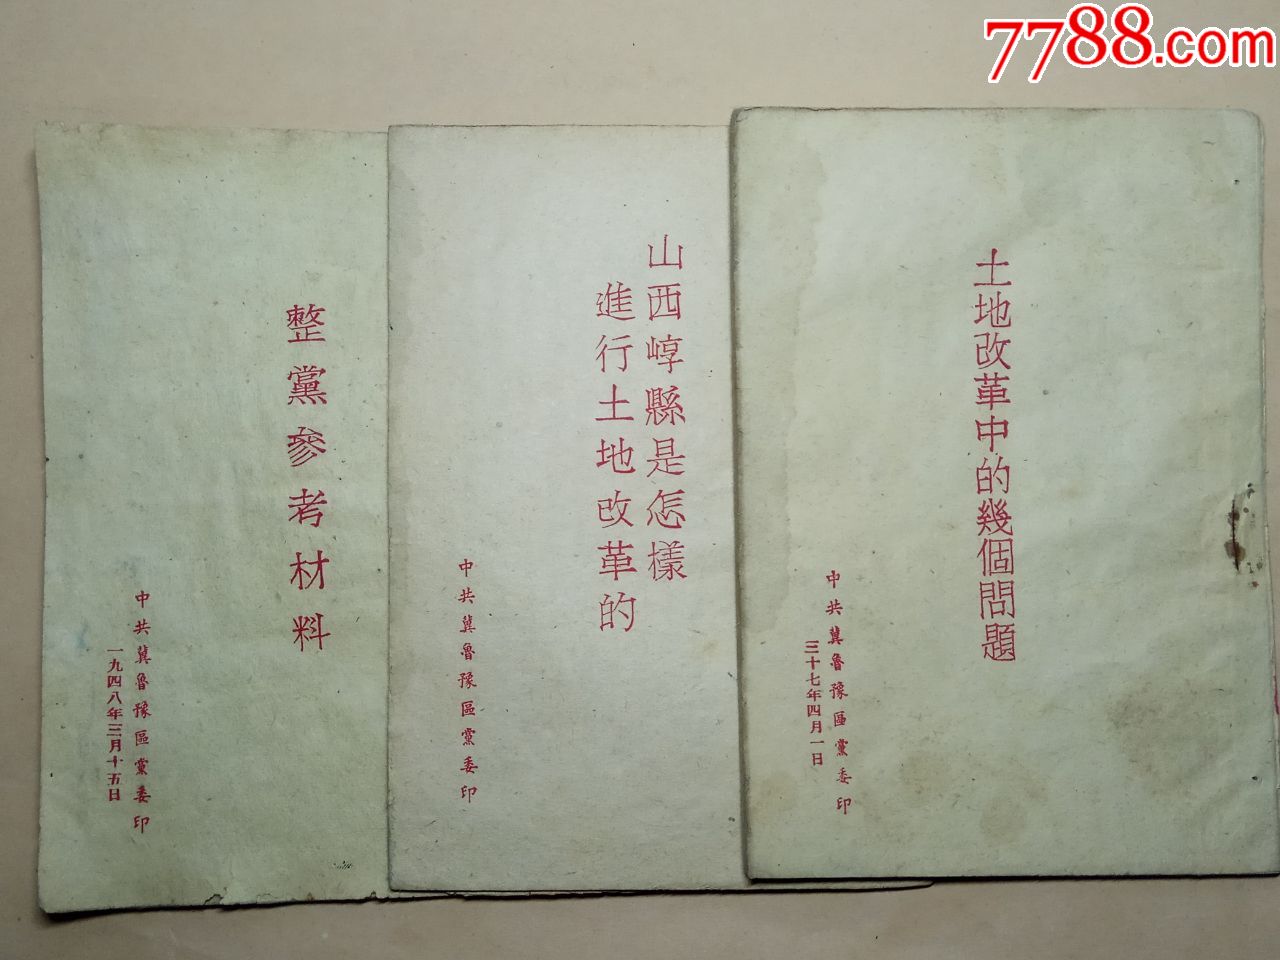 7788.com
整黨參考材料
中共冀魯豫區黨委印
一九四八年三月十五日
山西崞縣是怎樣
進行土地改革的
中共冀魯豫區黨委印
土地改革中的幾個問題
中共冀魯豫區黨委印
三十七年四月一日